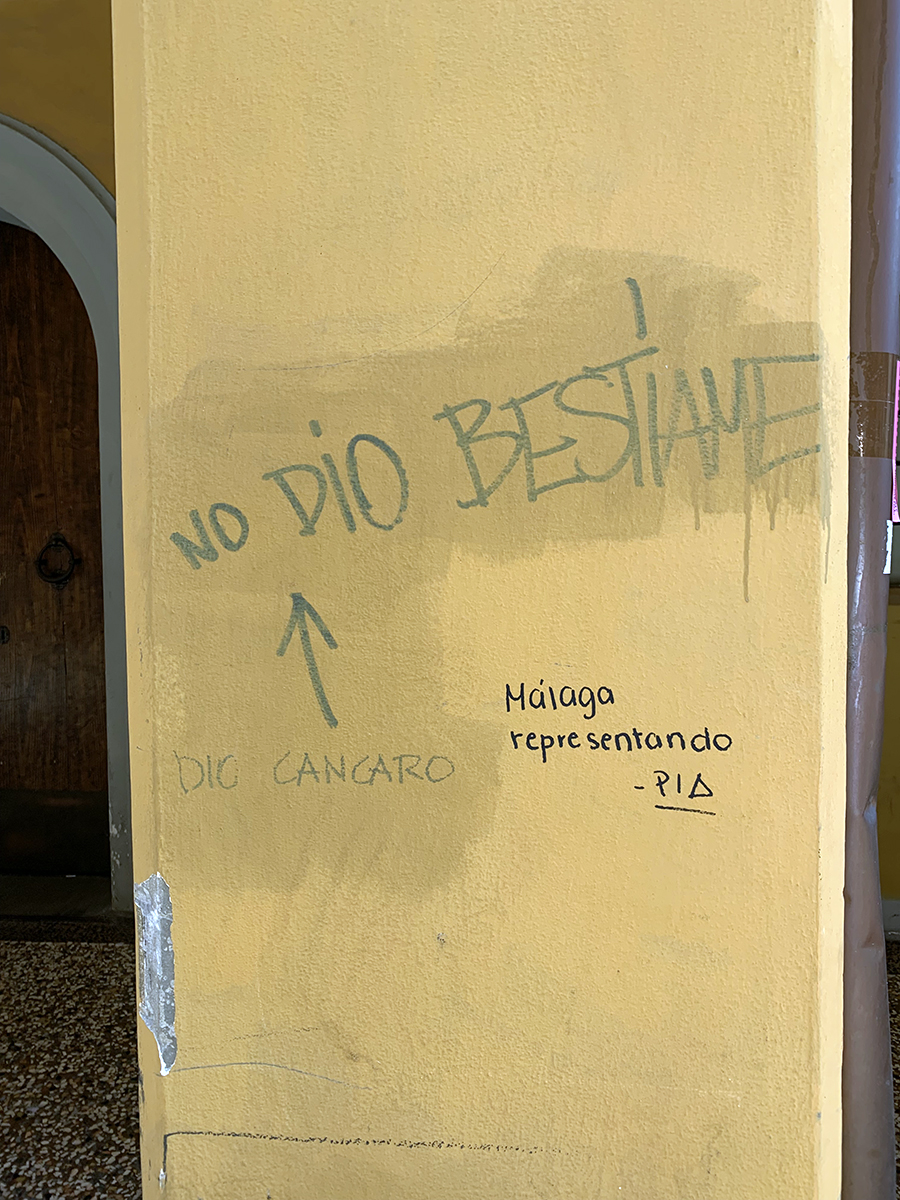 NO DIO BESTIAME
DIO CANCARO
Málaga
representando
- PIA